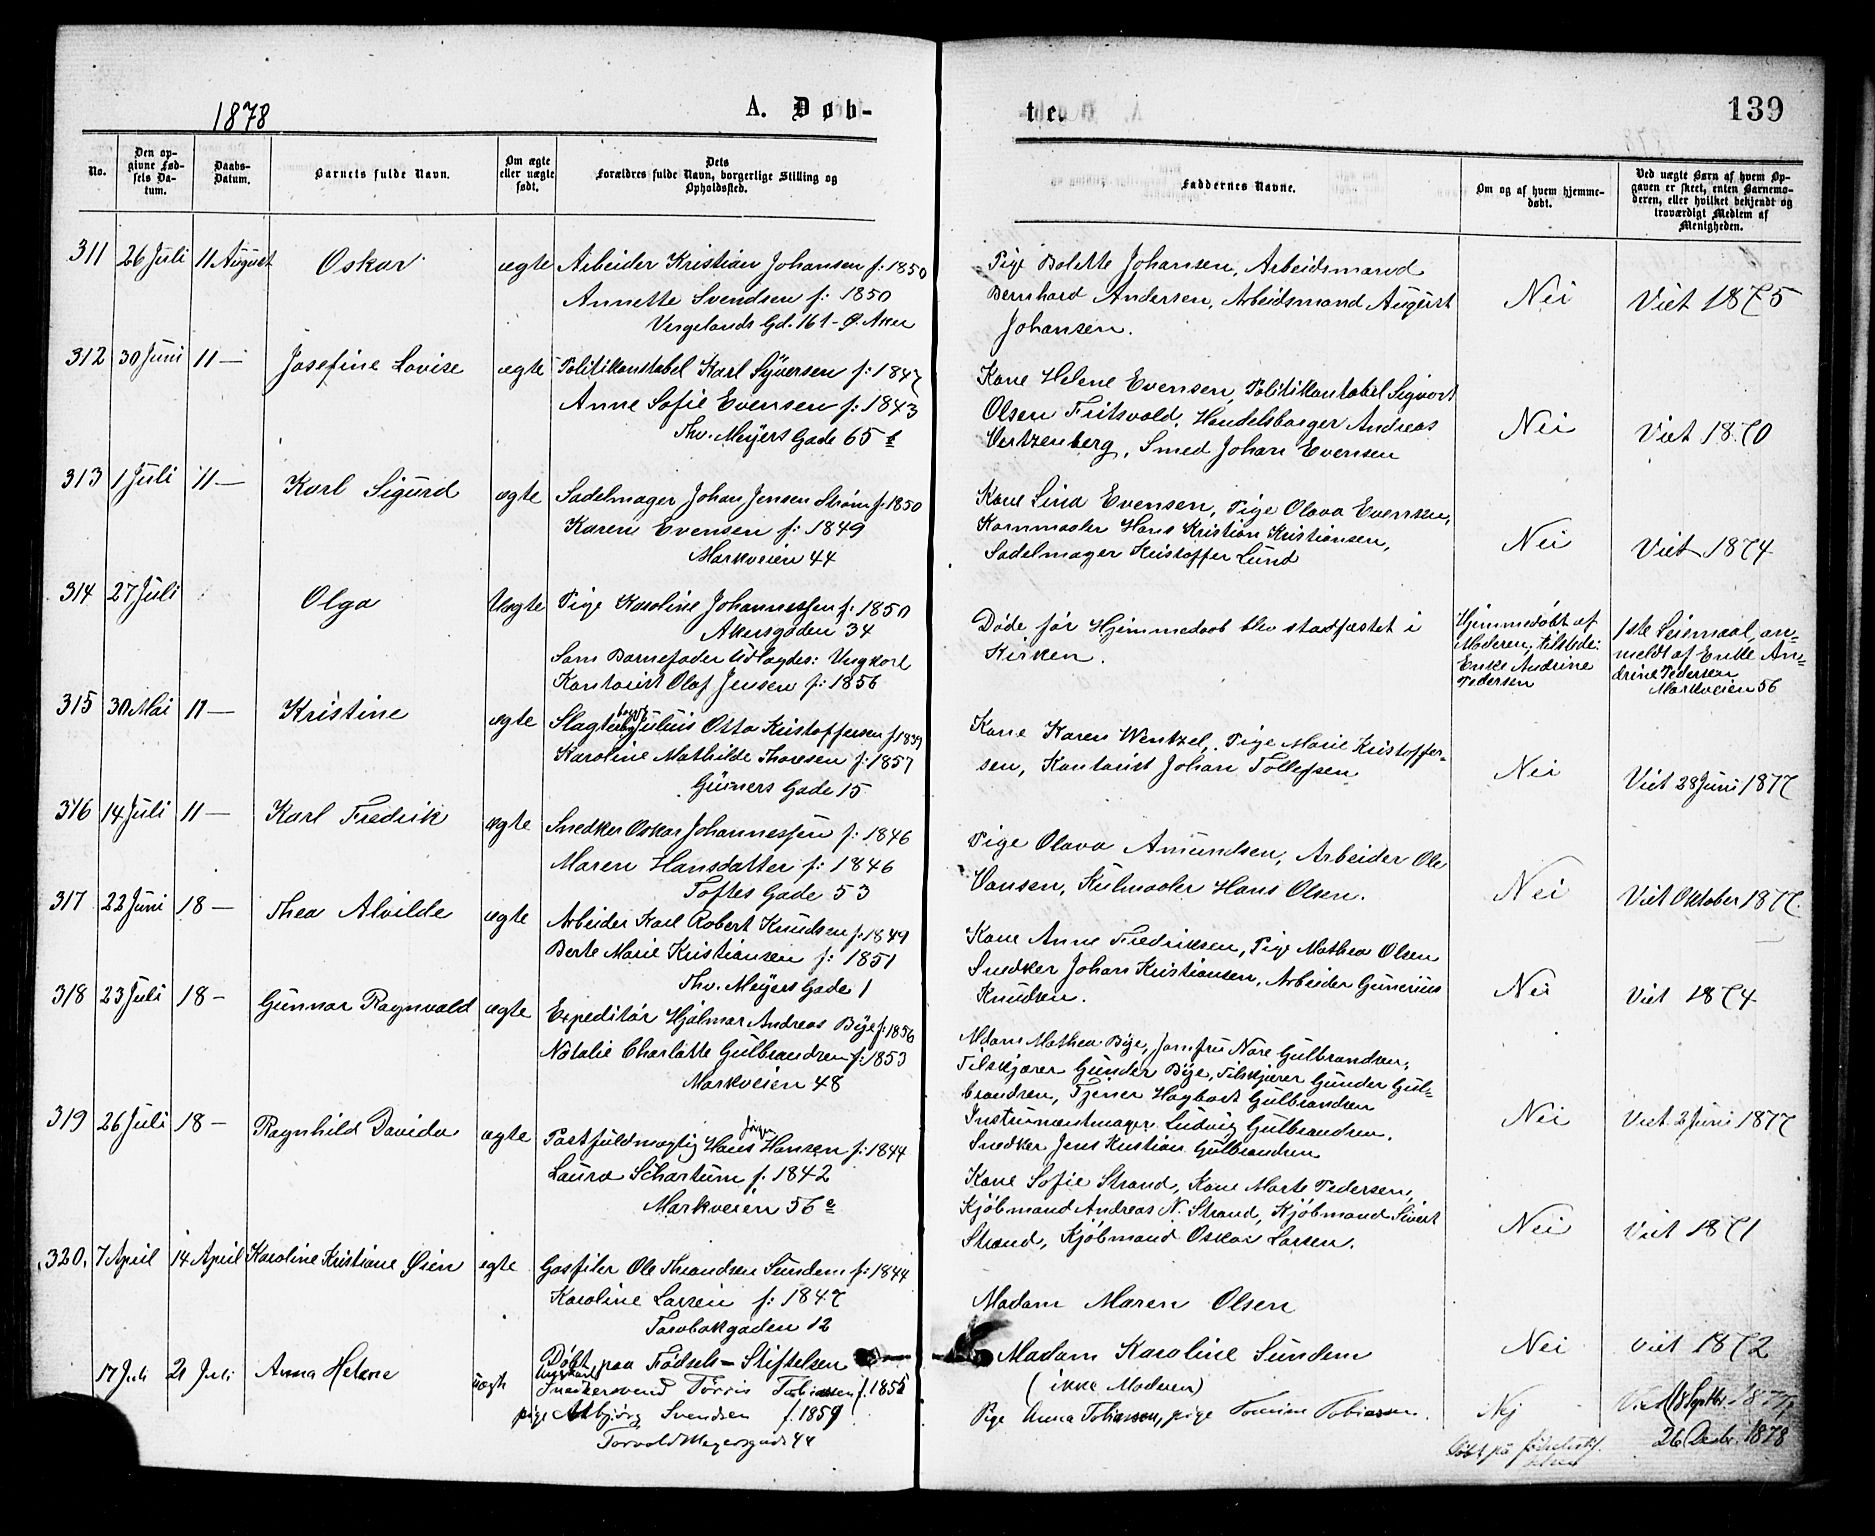 1878
A. Døb-
No.
Den op-
givne Fød-
sels Da-
tum.
Daabs-
Datum.
Barnets fulde Navn.
Om ægte
eller uægte
født.
Dets
Forældres fulde Navn, borgerlige Stilling og
Opholdssted.
311 26 Juli 11 August Oskar ægte Arbeider Kristian Johansen f: 1850
Annette Svendsen f: 1850
Vergelands Gd. 161 - Ø. Aker
312 30 Juni 11 — Josefine Lovise ægte Politikonstabel Karl Syversen f: 1847
Anne Sofie Evensen f: 1843
Thv. Meyers Gade 65
313 1 Juli 11 — Karl Sigurd ægte Sadelmager Johan Jensen Strøm f: 1850
Karen Evensen f: 1849
Markveien 44
314 27 Juli Olga Uægte Pige Karoline Johannessen f: 1850
Akersgaden 34
Som Barnefader udlagdes: Ungkarl
Kontorist Olaf Jensen f: 1856
315 30 Mai 11 — Kristine ægte Slagter Julius Otto Kristoffersen f: 1839
Karoline Mathilde Thoresen f: 1857
Gruners Gade 15
316 14 Juli 11 — Karl Fredrik ægte Snedker Oskar Johannessen f: 1846
Maren Hansdatter f: 1846
Toftes Gade 53
317 22 Juni 18 — Thea Alvilde ægte Arbeider Karl Robert Knudsen f: 1849
Berte Marie Kristiansen f: 1851
Thv. Meyers Gade 1
318 23 Juli 18 - Gunnar Ragnvald ægte Expeditør Hjalmar Andreas Bye f: 1856
Natalie Charlotte Gulbrandsen f: 1853
Markveien 48
319 26 Juli 18 - Ragnhild Davida ægte Postfuldmægtig Hans Jørgen Hansen f: 1844
Laura Schartum f. 1842
Markveien 56 c
320. 7 April 14 April Karoline Kristiane Øien ægte Gasfiler Ole Thrandsen Sundem f: 1844
Karoline Larsen f: 1847
Torvbakgaden 12
Døbt paa Fødsels-Stiftelsen
17 Juli 21 Juli Anna Helene uægte Ungkarl
Snedkersvend Torris Tobiassen f. 1855
pige Asbjørg Svendsen f. 1859
Torvald Meyersgade 44
te.
139
Faddernes Navne.
Om og af hvem hjemme-
døbt.
Ved uægte Børn af hvem Op-
gaven er skeet, enten Barnemo-
deren, eller hvilket bekjendt og
troværdigt Medlem af
Menigheden.
Pige Bolette Johansen, Arbeidsmand
Bernhard Andersen, Arbeidsmand August
Johansen.
Nei Viet 1875
Kone Helene Evensen, Politikonstabel Sigvart
Olsen Fritsvold, Handelsborger Andreas
Vertzenberg, Smed Johan Evensen
Nei Viet 1870
Kone Lina Evensen, Pige Olava Evensen,
Kornmaaler Hans Kristian Kristiansen,
Sadelmager Kristoffer Lund
Nei Viet 1874
Døde før Hjemmedaab blev stadfæstet i
Kirken.
Hjemmedøbt af
Moderen, tilstede:
Enke Andrine
Pedersen
1ste Leiemaal, an-
meldt af Enke An-
drine Pedersen
Markveien 56
Kone Karen Wentzel, Pige Marie Kristoffer-
sen, Kontorist Johan Tollefsen
Nei Viet 28 Juni 1877
Pige Olava Amundsen, Arbeider Ole
Hansen, Kulmaaler Hans Olsen.
Nei Viet Oktober 1877.
Kone Anne Fredriksen, Pige Mathea Olsen
Snedker Johan Kristiansen, Arbeider Gunerius
Knudsen.
Nei Viet 1874
Madam Mathea Bye, Jomfru Nare Gulbrandsen,
Filskjærer Gunder Bye, Filskjærer Gunder Gul-
brandsen, Tjener Hagbart Gulbrandsen
Instrumentmager Ludvig Gulbrandsen.
Snedker Jens Kristian Gulbrandsen
Nei Viet 2 Juni 1877
Kone Sofie Strand, Kone Marte Pedersen,
Kjøbmand Andreas N. Strand, Kjøbmand Sivert
Strand, Kjøbmand Oskar Larsen.
Nei Viet 1871
Madam Maren Olsen
Madam Karoline Sundem
(ikke Moderen)
Nei Viet 1872
Pige Anna Tobiassen, pige Tomine Tobiassen.
Nej
26 Decbr. 1878
Døbt på